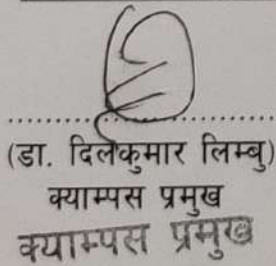 (डा. दिलकुमार लिम्बु)
क्याम्पस प्रमुख
क्याम्पस प्रमुख